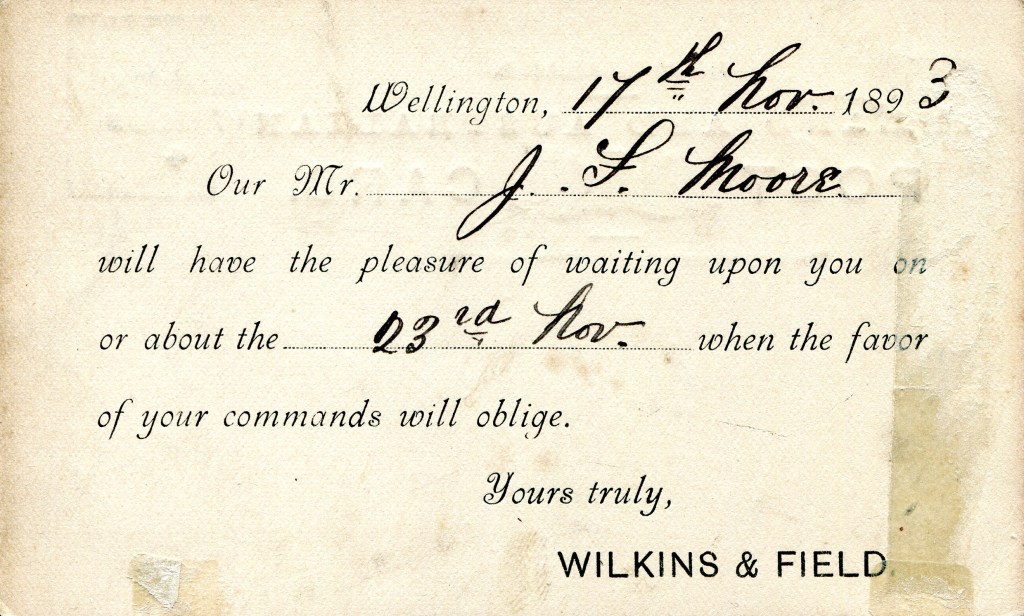 Wellington, 17th Nov. 1893
Our Mr. J. F. Moore
will have the pleasure of waiting upon you on
or about the 23rd Nov. when the favor
of your commands will oblige.
Yours truly,
WILKINS & FIELD